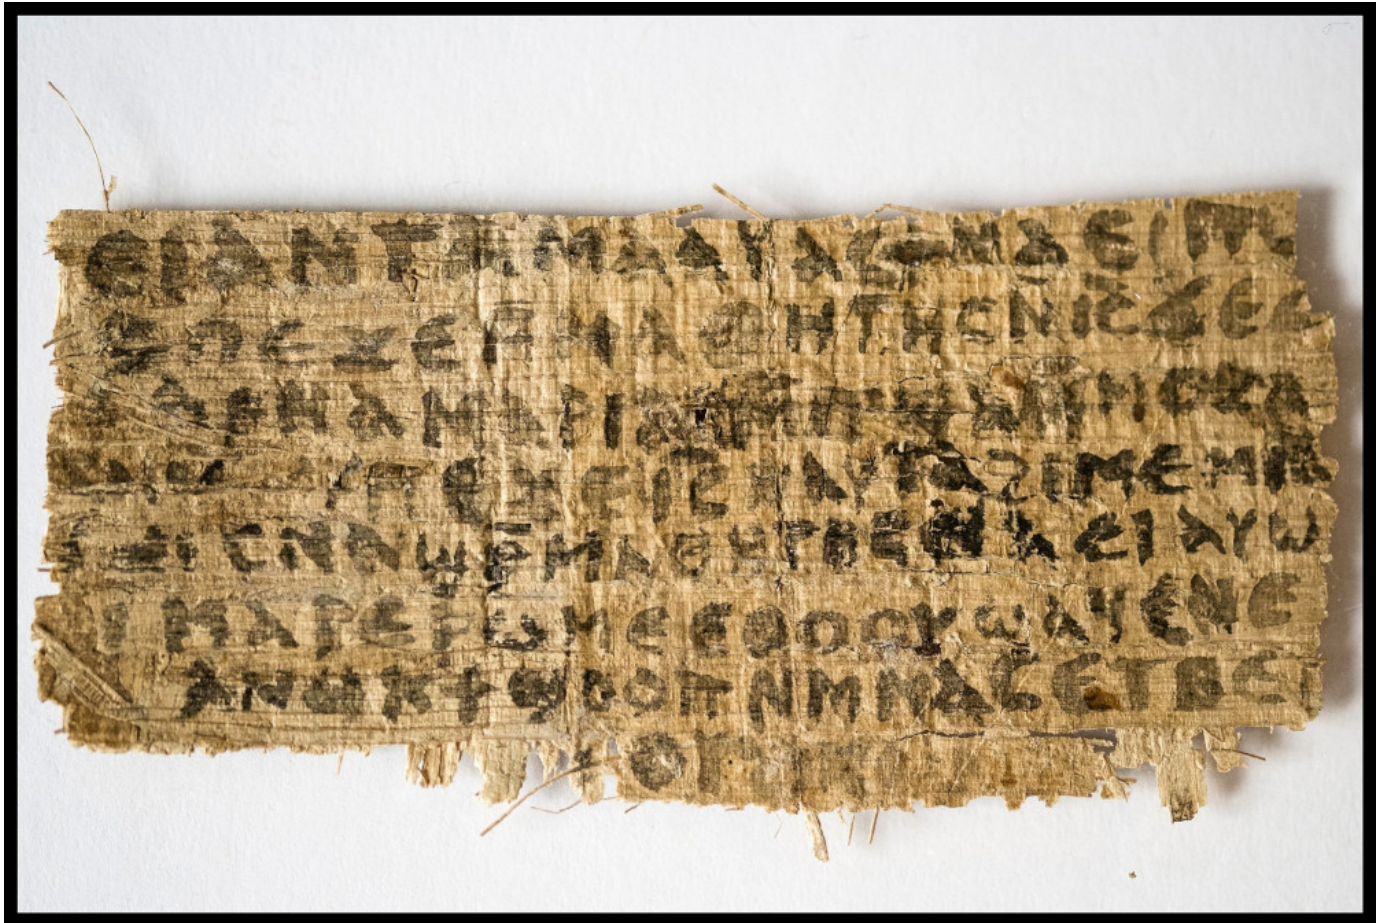 ⲉⲓ ⲁⲛ ⲧⲁⲙⲁⲁⲩ ⲁⲥϯ ⲛⲁⲉⲓ ⲡ
ⲥ ⲡⲉϫⲉ ⲙⲙⲁⲑⲏⲧⲏⲥ ⲛ̄ⲓ̄ⲥ̄ ϫⲉ ⲥ
ⲁⲣⲛⲁ ⲙⲁⲣⲓⲁⲙ ⲙⲡϣⲁ ⲙⲙⲟⲥ ⲁ
ⲡⲉϫⲉ ⲓ̄ⲥ̄ ⲛⲁⲩ ⲧⲁϩⲓⲙⲉ ⲙⲛ
ⲥⲛⲁϣⲣ̄ⲙⲁⲑⲏⲧⲏⲥ ⲛⲁⲉⲓ ⲁⲩⲱ
ⲓ ⲙⲁⲣⲉⲣⲱⲙⲉ ⲉⲑⲟⲟⲩ ϣⲁϥⲉ ⲛⲉ
ⲁⲛⲟⲕ ϯϣⲟⲟⲡ ⲛⲙⲙⲁⲥ ⲉⲧⲃⲉ ⲡ